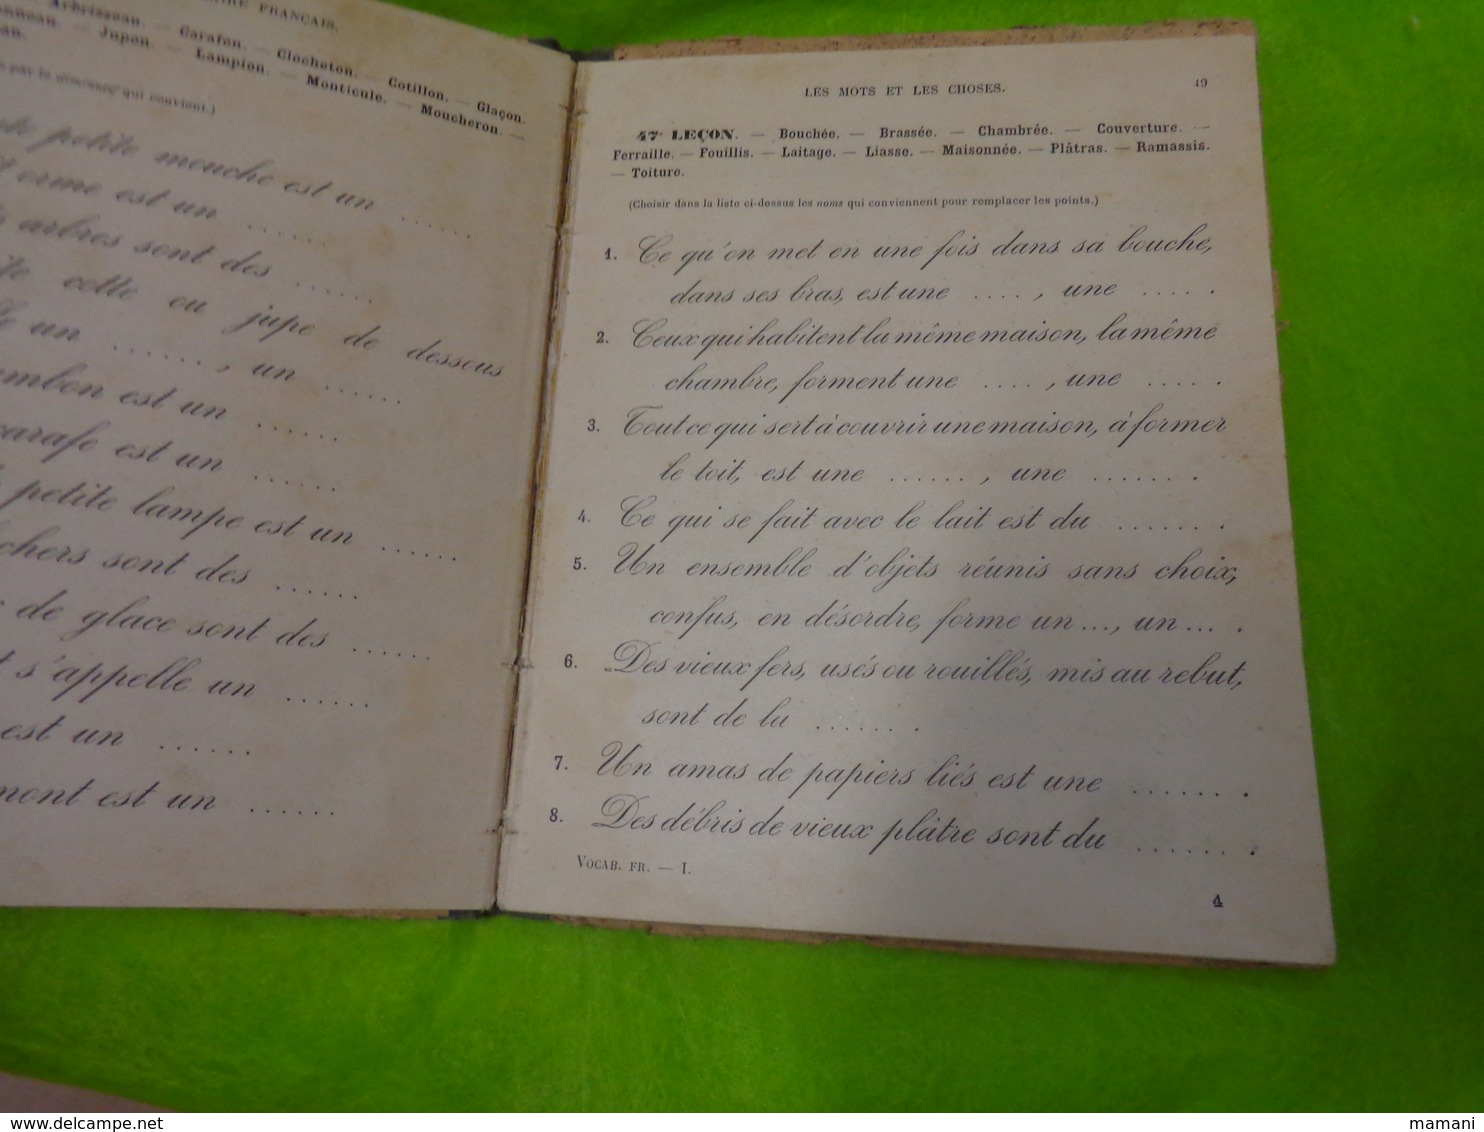 FRANÇAIS.
Arbrisseau. — Carafon. — Clocheton. — Cotillon. — Glaçon.
Jupon. — Lampion. — Monticule. — Moucheron. —
par le qui convient.)
petite mouche est un ......
orme est un ......
arbres sont des ......
cotte ou jupe de dessous
un ......, un ......
est un ......
carafe est un ......
petite lampe est un ......
sont des ......
de glace sont des ......
s'appelle un ......
est un ......
mont est un ......
LES MOTS ET LES CHOSES. 49
47e LEÇON. — Bouchée. — Brassée. — Chambrée. — Couverture. —
Ferraille. — Fouillis. — Laitage. — Liasse. — Maisonnée. — Plâtras. — Ramassis.
— Toiture.
(Choisir dans la liste ci-dessus les noms qui conviennent pour remplacer les points.)
1. Ce qu'on met en une fois dans sa bouche,
dans ses bras, est une ...., une ..... .
2. Ceux qui habitent la même maison, la même
chambre, forment une ...., une ..... .
3. Tout ce qui sert à couvrir une maison, à former
le toit, est une ......, une ....... .
4. Ce qui se fait avec le lait est du ....... .
5. Un ensemble d'objets réunis sans choix,
confus, en désordre, forme un ..., un ... .
6. Des vieux fers, usés ou rouillés, mis au rebut,
sont de la ....... .
7. Un amas de papiers liés est une ....... .
8. Des débris de vieux plâtre sont du ....... .
VOCAB. FR. — I.
4
mamani